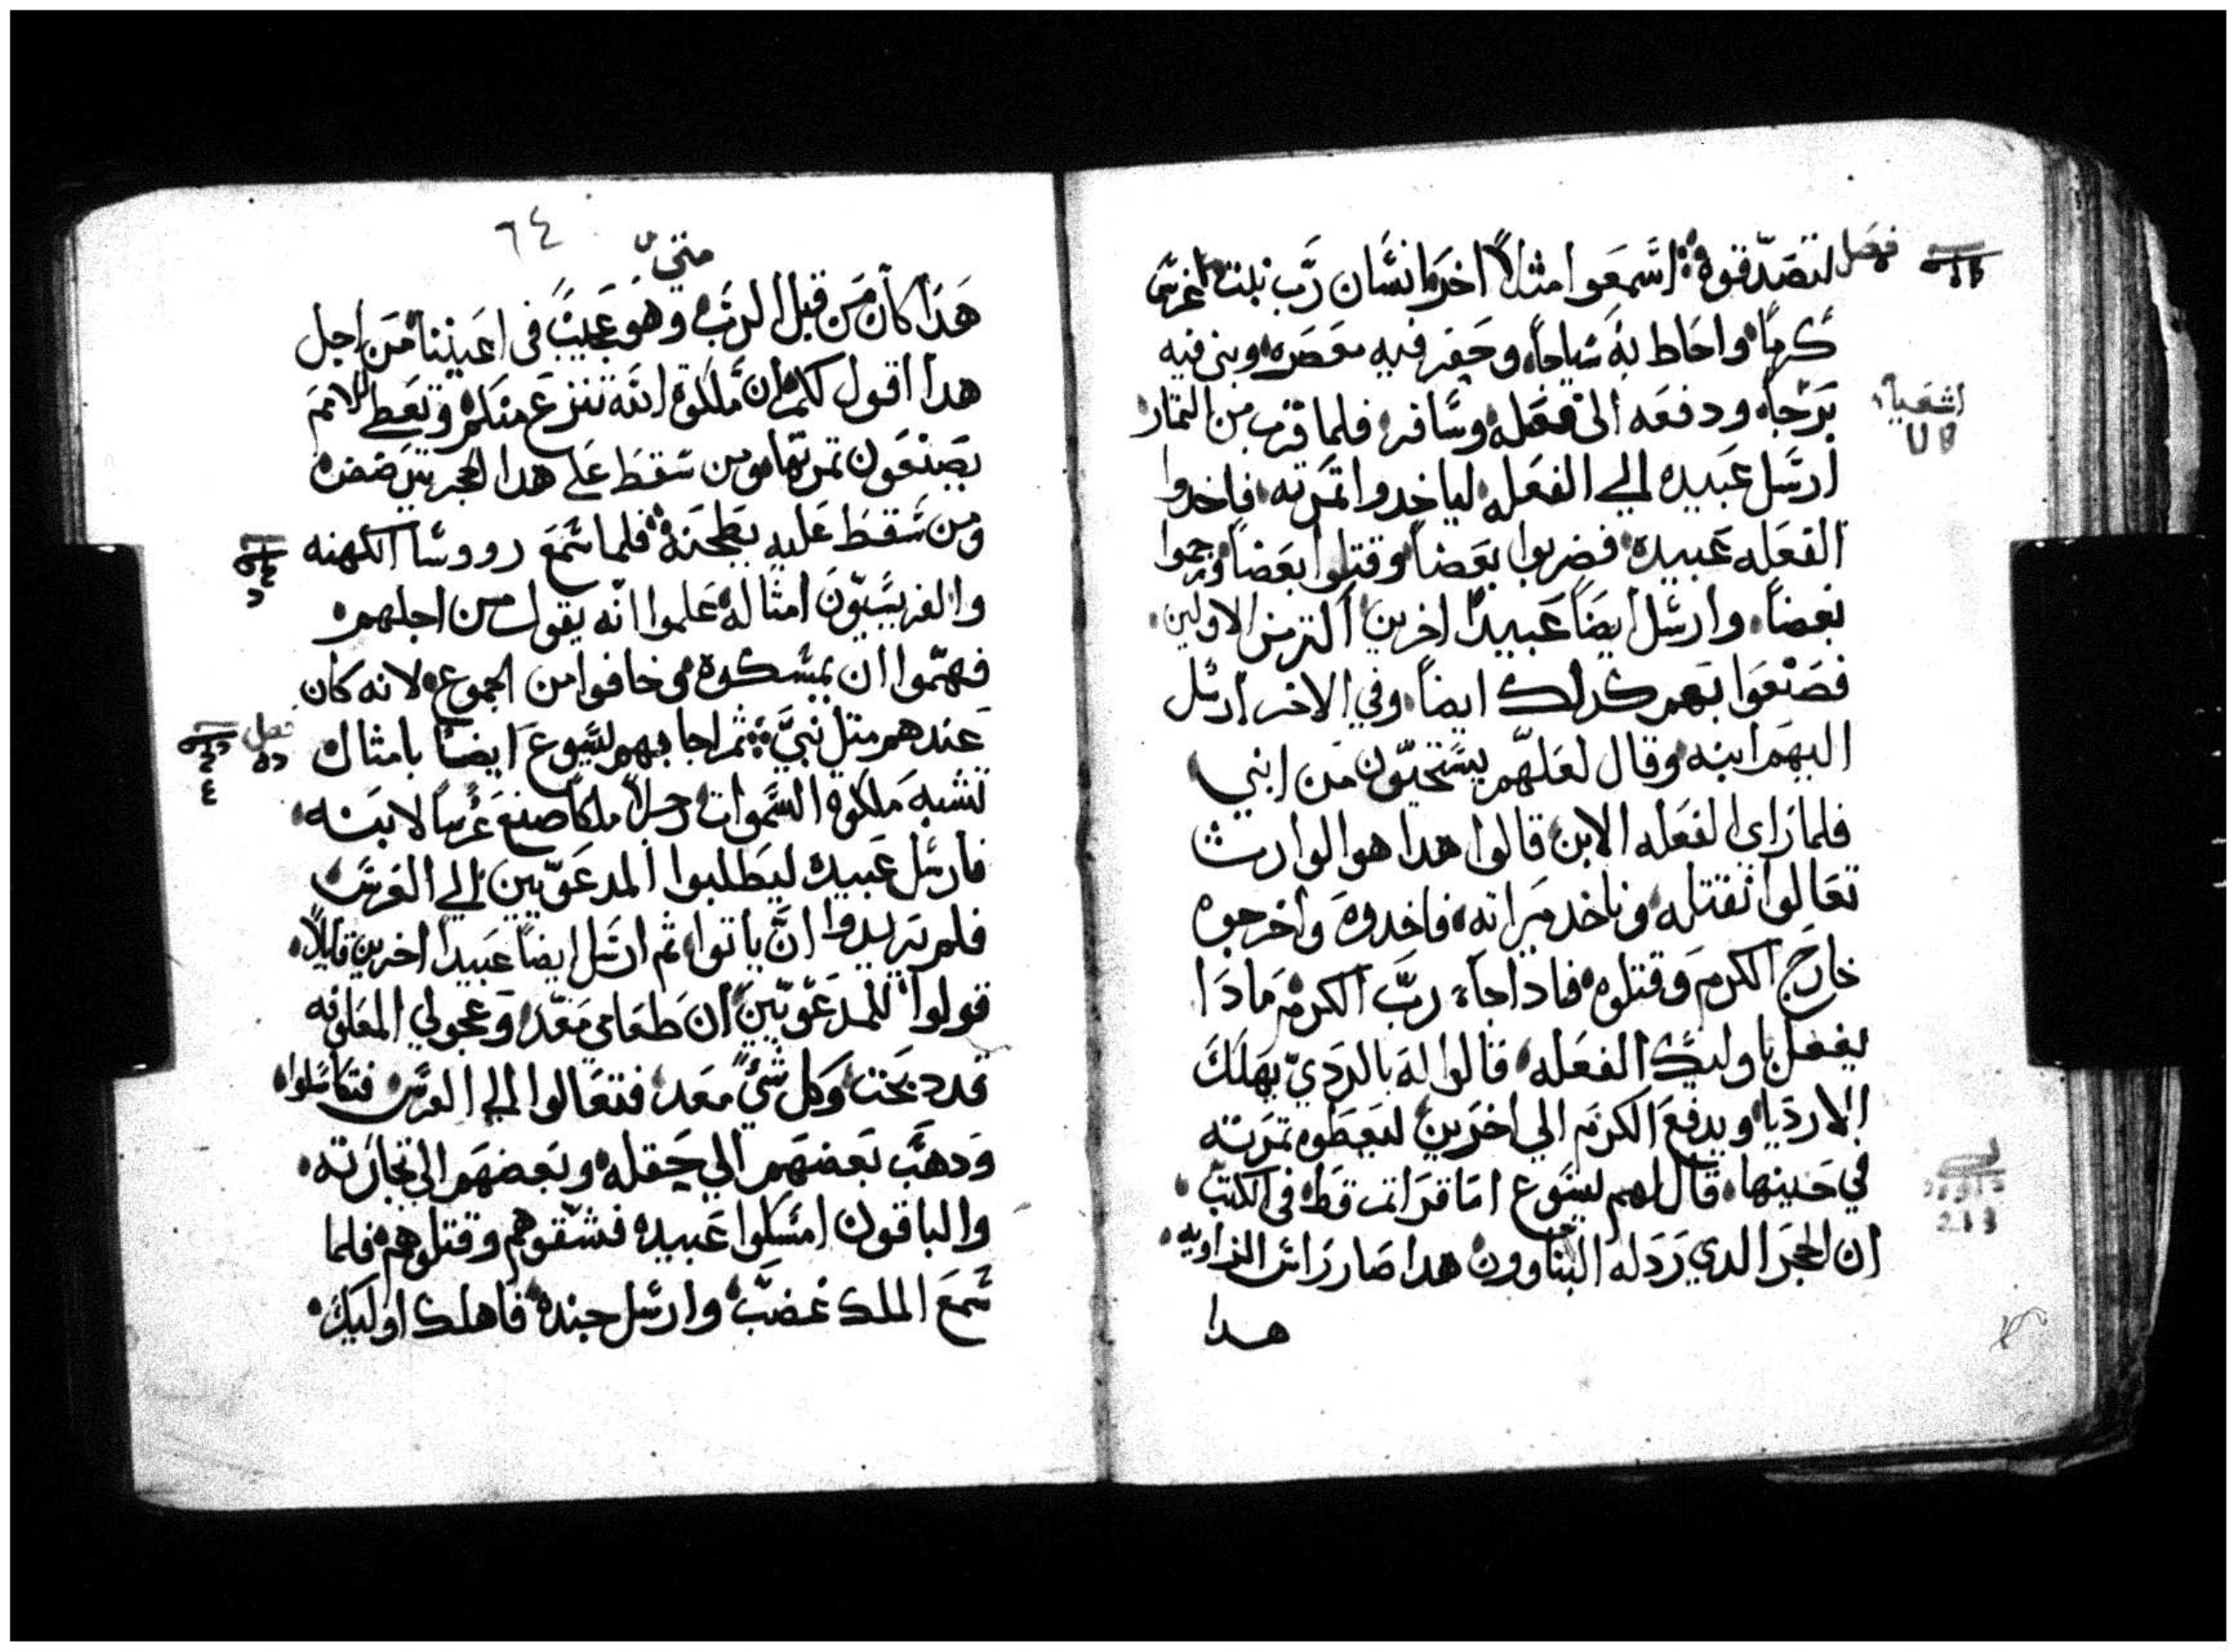 فصل لتصدقوه اسمعوا مثالاً اخر انسان رب بيت غرس
كرماً واحاط به سياجاً وحفر فيه معصره وبنى فيه
برجاً ودفعه الى فعله وسافر فلما قرب زمن الثمار
اشعيا
ارسل عبيده الي الفعله لياخدوا تمرته فاخدوا
الفعله عبيده فضربوا بعضاً وقتلوا بعضاً ورجموا
بعضاً وارسل ايضاً عبيداً اخرين اكتر من الاولين
فصنعوا بهم كدلك ايضاً وفي الاخر ارسل
اليهم ابنه وقال لعلهم يستحيون من ابني
فلما راي الفعله الابن قالوا هدا هو الوارث
تعالوا نقتله وناخد ميراثه فاخدوه واخرجوه
خارج الكرم وقتلوه فادا جاء رب الكرم مادا
يفعل باوليك الفعله قالوا له بالردي يهلك
الارديا ويدفع الكرم الي اخرين ليعطوه تمرته
في حينها قال لهم يسوع اما قراتم قط في الكتب
ان الحجر الدي رذله البناوون هدا صار راس الزاويه
هدا
٦٤
متي
هدا كان من قبل الرب وهو عجيب في اعيننا من اجل
هدا اقول لكم ان ملكوة الله تنزع منكم وتعطي للامم
يصنعون تمرتها ومن سقط علي هدا الحجر يترضض
ومن سقط عليه يطحنه فلما سمع رووسا الكهنه
والفريسيون امثاله علموا انه يقول من اجلهم
فهموا ان يمسكوه وخافوا من الجموع لانه كان
عندهم متل نبي ثم اجابهم يسوع ايضاً بامثال
فصل
تشبه ملكوة السموات رجلاً ملكاً صنع عرساً لابنه
فارسل عبيده ليطلبوا المدعويين الي العرس
فلم يريدوا ان ياتوا ثم ارسل ايضاً عبيداً اخرين قايلاً
قولوا للمدعويين ان طعامي معد وعجولي المعلوفه
قد دبحت وكل شي معد فتعالوا الي العرس فتكاسلوا
ودهب بعضهم الي حقله وبعضهم الي تجارته
والباقون امسكوا عبيده فشتموهم وقتلوهم فلما
سمع الملك غضب وارسل جنده فاهلك اوليك